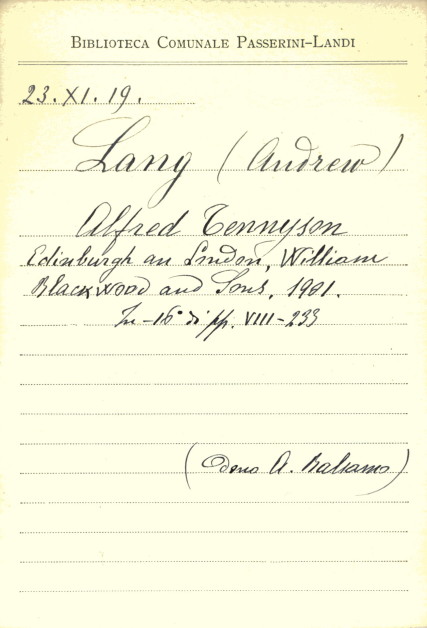 BIBLIOTECA COMUNALE PASSERINI-LANDI
23. XI. 19.
Lang (Andrew)
Alfred Tennyson
Edinburgh an London, William
Blackwood and Sons, 1901.
In-16° di pp. VIII-233
(dono A. Balsamo)